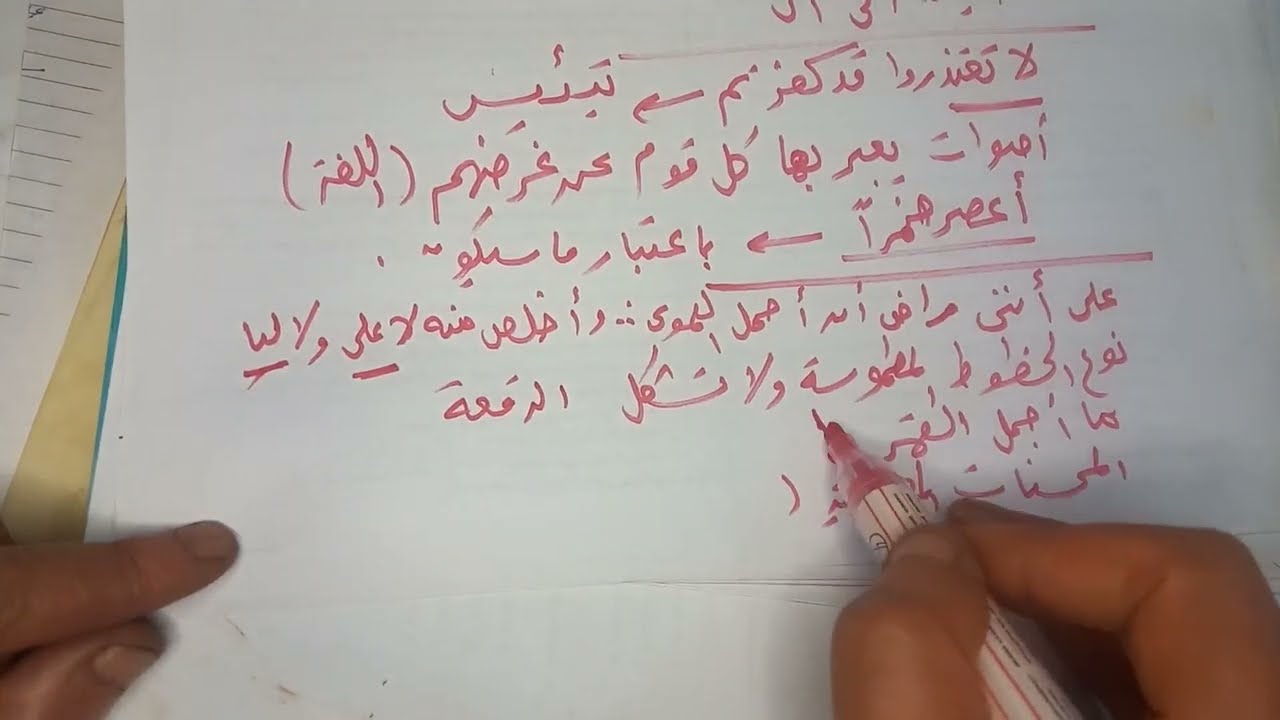 لا تعتذروا قد كفرتم ← تيئيس
أصوات يعبر بها كل قوم عن غرضهم (اللغة)
أعصر خمراً ← باعتبار ما سيكون .
على أنني راض أن أحمل الهوى .. وأخلص منه لا علي ولا ليا
نوع الخطوط المطموسة ولا تشكل الرقعة
ما أجمل القمر
المحسنات